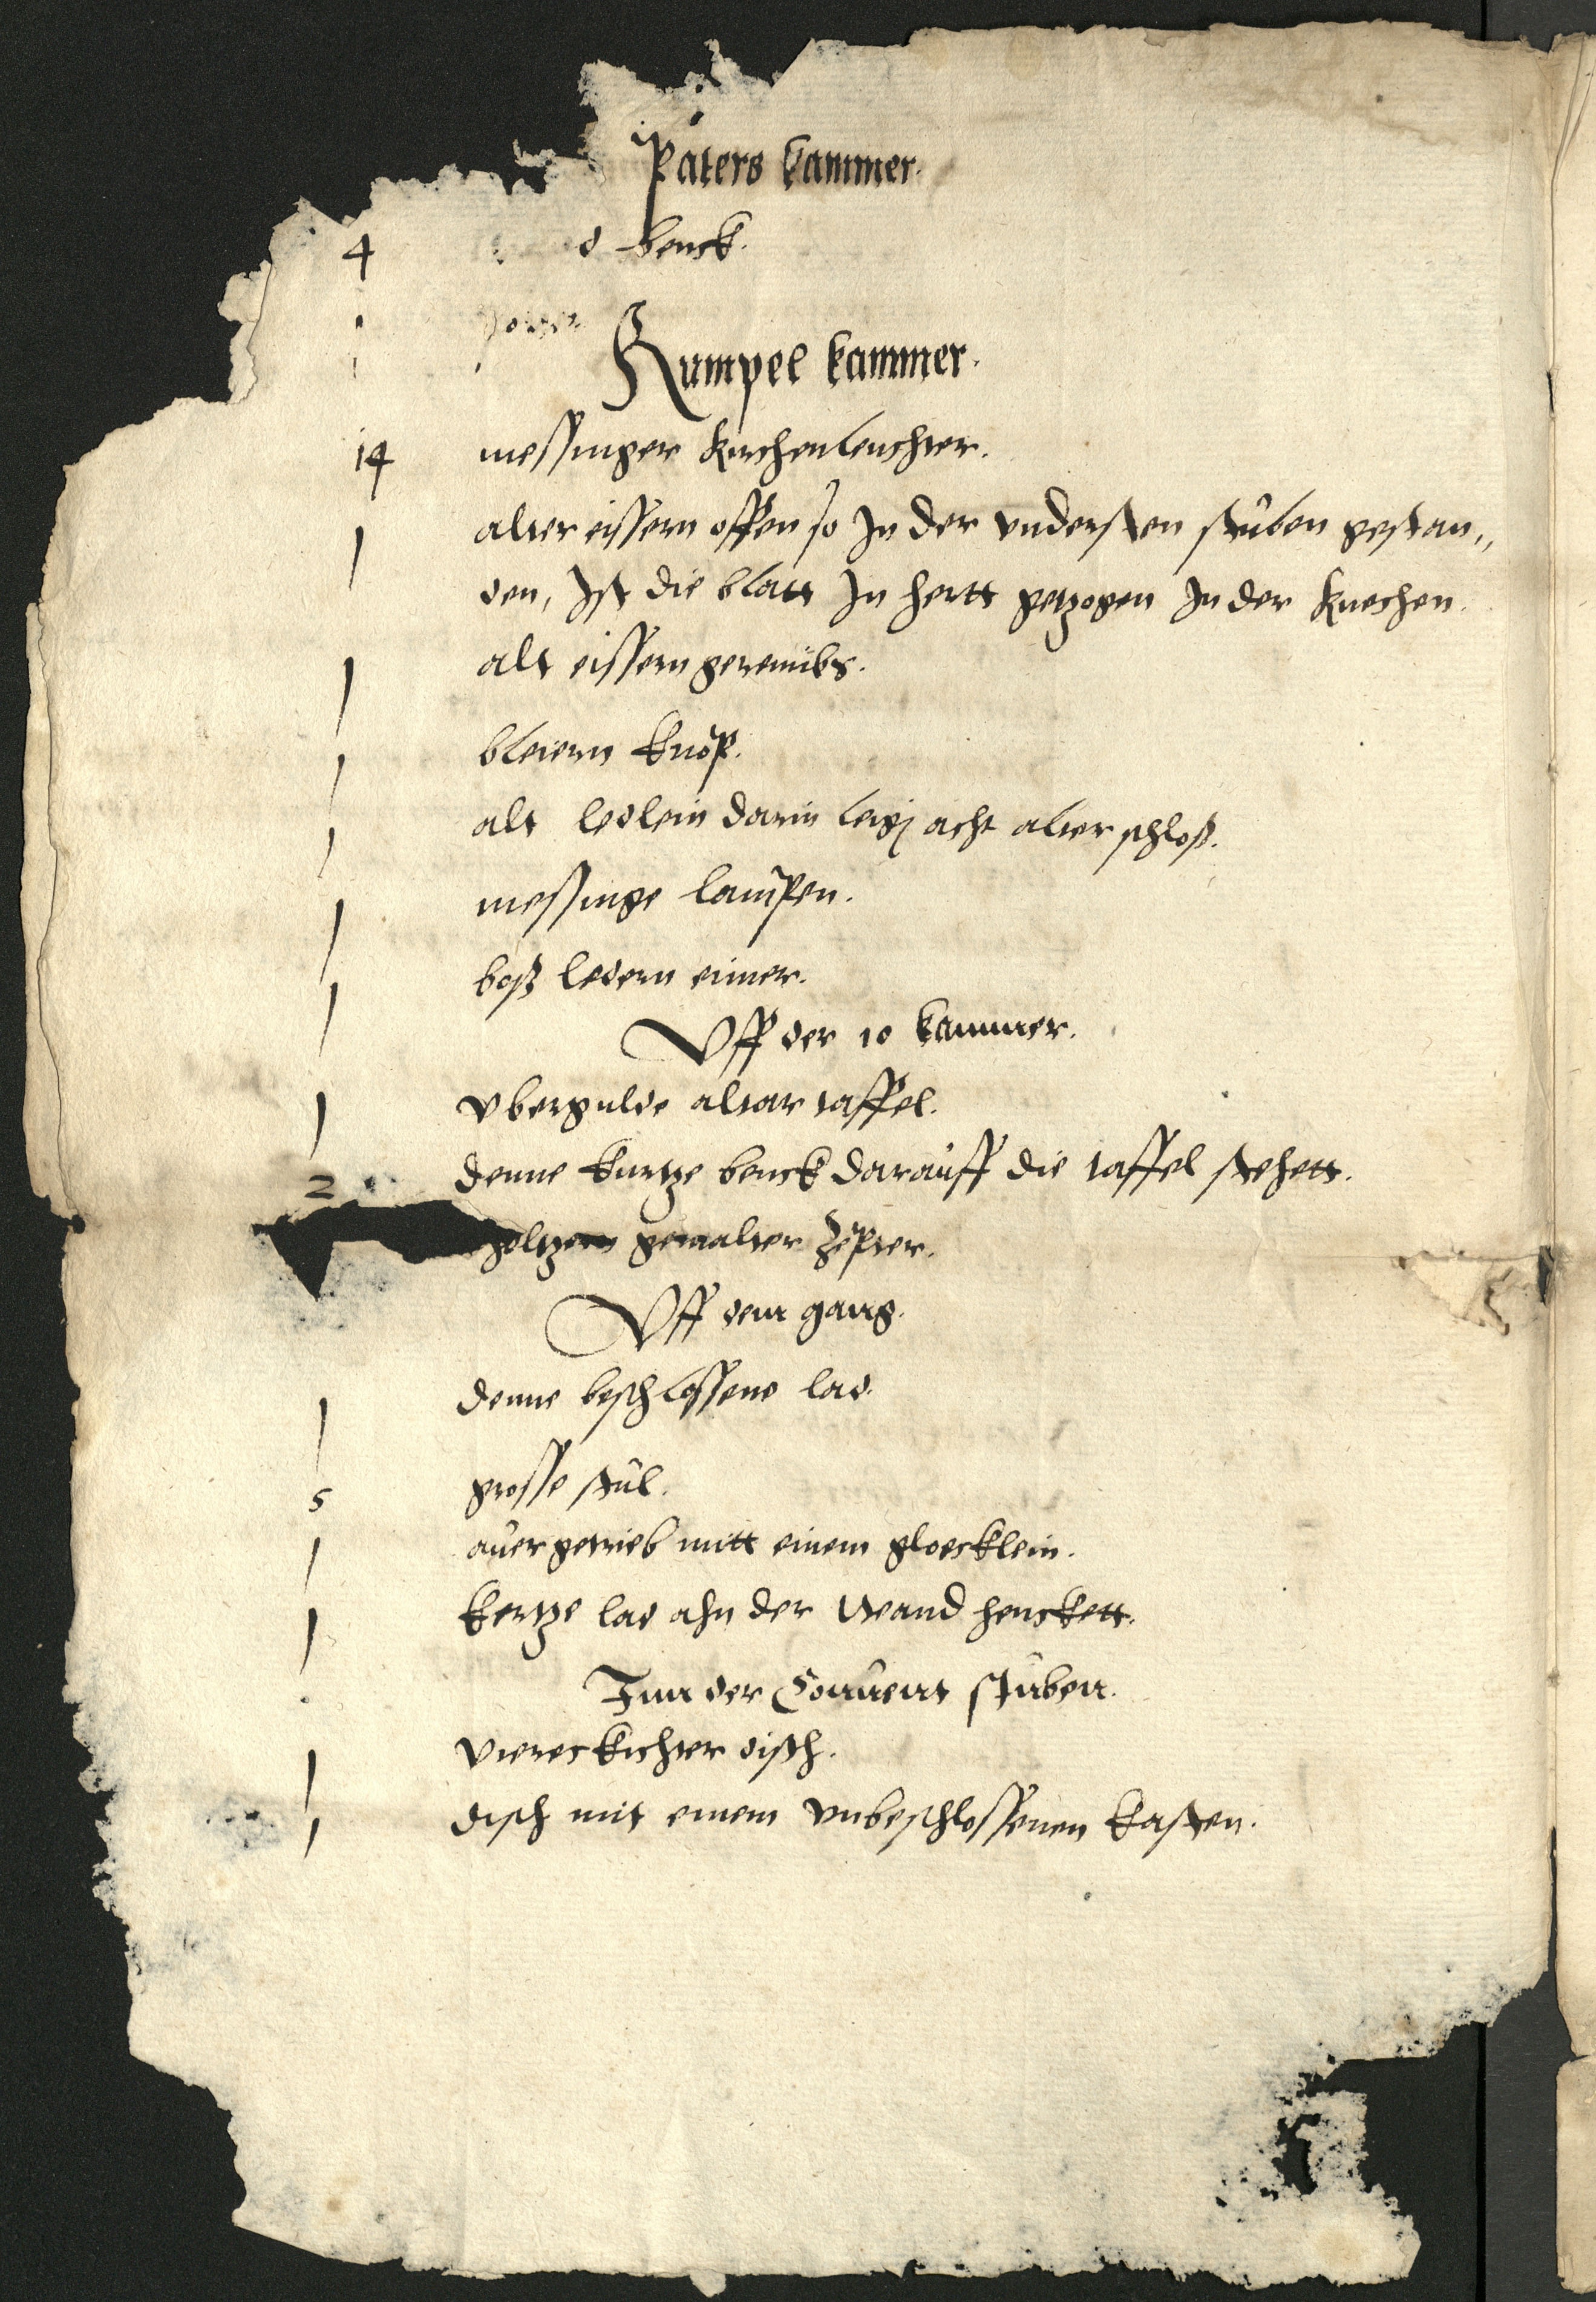 Paters kammer.
4 benck.
Rumpel kammer.
14 messinger kirchenleuchter.
1 alter eissern offen so In der vndersten stuben gestan„
den, Ist die blatt In hertt getzogen In der kuechen.
1 alt eissern geremübs.
1 bleiern knöp.
1 alt ledlein darin ligt acht alter schloß.
1 messinge lampen.
1 boß ledern eimer.
Vff der 10 kammer.
1 vbergulde altar taffel.
2 denne kurtze benck darauff die taffel stehett.
holtzern gemalter Zepter.
Vff dem gang.
1 denne beschlossene lad.
5 grosse stül.
1 auer getrieb mitt einem gloecklein.
1 kertze lad ahn der Wand henckett.
Inn der Conuent stuben.
1 viereckichter disch.
1 disch mit einem vnbeschlossenen kasten.